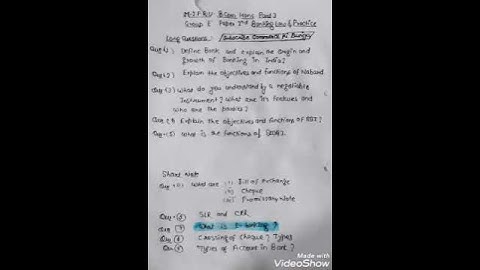 M.J.P.R.U B.Com Hons Part 3
Group Paper 2nd Banking Law & Practice
Long Questions:
Que (1) Define Bank and explain the origin and
growth of Banking in India?
Que (2) Explain the objectives and functions of Nabard
Que (3) What do you understand by a negotiable
instrument? What are its features and
who are the parties?
Que (4) Explain the objectives and functions of RBI?
Que (5) What is the functions of SIDBI.
Short Note
Que What are (1) Bill of Exchange
(2) Cheque
(3) Promissary Note
Que SLR and CRR
Que What is E-banking?
Que Crossing of Cheque? Types
Que Types of Account in Bank?
Made with
VideoShow